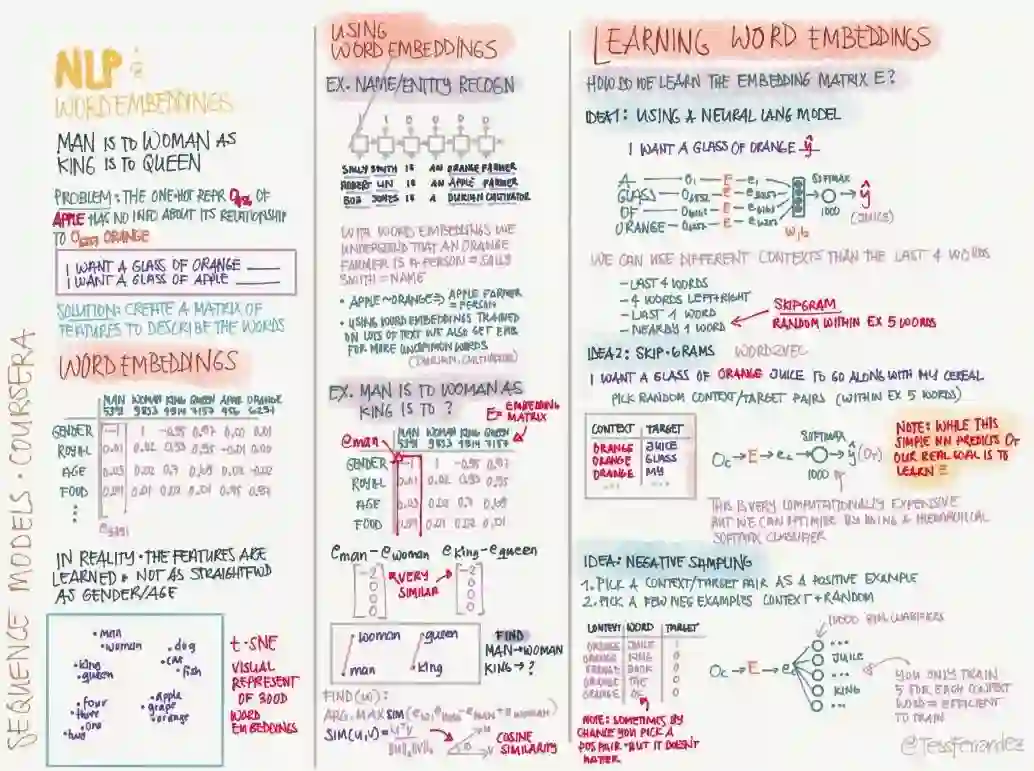 SEQUENCE MODELS · COURSERA
NLP:
WORD EMBEDDINGS
MAN IS TO WOMAN AS
KING IS TO QUEEN
PROBLEM: THE ONE-HOT REPR O456 OF
APPLE HAS NO INFO ABOUT ITS RELATIONSHIP
TO O6257 ORANGE
I WANT A GLASS OF ORANGE ____
I WANT A GLASS OF APPLE ____
SOLUTION: CREATE A MATRIX OF
FEATURES TO DESCRIBE THE WORDS
WORD EMBEDDINGS
MAN WOMAN KING QUEEN APPLE ORANGE
5391 9853 4914 7157 456 6257
GENDER -1 1 -0.95 0.97 0.00 0.01
ROYAL 0.01 0.02 0.93 0.95 -0.01 0.00
AGE 0.03 0.02 0.7 0.69 0.03 -0.02
FOOD 0.04 0.01 0.02 0.01 0.95 0.97
e5391
IN REALITY · THE FEATURES ARE
LEARNED & NOT AS STRAIGHTFWD
AS GENDER/AGE
man
woman
dog
king
cat
queen
fish
four
apple
three
grape
one
orange
two
t-SNE
VISUAL
REPRESENT
OF 300D
WORD
EMBEDDINGS
USING
WORD EMBEDDINGS
EX. NAME/ENTITY RECOGN
1 1 0 0 0 0
SALLY SMITH IS AN ORANGE FARMER
ROBERT LIN IS AN APPLE FARMER
BOB JONES IS A DURIAN CULTIVATOR
WITH WORD EMBEDDINGS WE
UNDERSTAND THAT AN ORANGE
FARMER IS A PERSON ⇒ SALLY
SMITH = NAME
• APPLE ~ ORANGE ⇒ APPLE FARMER
= PERSON
• USING WORD EMBEDDINGS TRAINED
ON LOTS OF TEXT WE ALSO GET EMB
FOR MORE UNCOMMON WORDS
(DURIAN, CULTIVATOR)
EX. MAN IS TO WOMAN AS
KING IS TO ?
E = EMBEDDING
MATRIX
eman
MAN WOMAN KING QUEEN
5391 9853 4914 7157
GENDER -1 1 -0.95 0.97
ROYAL 0.01 0.02 0.93 0.95
AGE 0.03 0.02 0.7 0.69
FOOD 0.04 0.01 0.02 0.01
eman - ewoman eking - equeen
-2 -2
0 0
0 0
0 0
VERY
SIMILAR
woman queen
man king
FIND
MAN→WOMAN
KING→?
FIND(W):
ARG.MAX SIM(ew, eKING - eMAN + eWOMAN)
SIM(U,V) =
COSINE
SIMILARITY
LEARNING WORD EMBEDDINGS
HOW DO WE LEARN THE EMBEDDING MATRIX E?
IDEA1: USING A NEURAL LANG MODEL
I WANT A GLASS OF ORANGE ŷ
A — O1 — E — e1
GLASS — O3852 — E — e3852
OF — O6163 — E — e6163
ORANGE — O6257 — E — e6257
W,b
SOFTMAX
1000
ŷ
(JUICE)
WE CAN USE DIFFERENT CONTEXTS THAN THE LAST 4 WORDS
- LAST 4 WORDS
- 4 WORDS LEFT+RIGHT
- LAST 1 WORD
- NEARBY 1 WORD
SKIPGRAM
RANDOM WITHIN EX 5 WORDS
IDEA2: SKIP-GRAMS WORD2VEC
I WANT A GLASS OF ORANGE JUICE TO GO ALONG WITH MY CEREAL
PICK RANDOM CONTEXT/TARGET PAIRS (WITHIN EX 5 WORDS)
CONTEXT TARGET
ORANGE JUICE
ORANGE GLASS
ORANGE MY
...
Oc → E → ec → ŷ (OT)
SOFTMAX
1000
NOTE: WHILE THIS
SIMPLE NN PREDICTS OT
OUR REAL GOAL IS TO
LEARN E
THIS IS VERY COMPUTATIONALLY EXPENSIVE
BUT WE CAN OPTIMISE BY USING A HIERARCHICAL
SOFTMAX CLASSIFIER
IDEA: NEGATIVE SAMPLING
1. PICK A CONTEXT/TARGET PAIR AS A POSITIVE EXAMPLE
2. PICK A FEW NEG EXAMPLES CONTEXT + RANDOM
CONTEXT WORD TARGET
ORANGE JUICE 1
ORANGE KING 0
ORANGE BOOK 0
ORANGE THE 0
ORANGE OF 0
NOTE: SOMETIMES BY
CHANCE YOU PICK A
POS PAIR · BUT IT DOESN'T
MATTER
Oc → E → ec
10000 BIN. CLASSIFIERS
...
JUICE
...
...
KING
YOU ONLY TRAIN
5 FOR EACH CONTEXT
WORD = EFFICIENT
TO TRAIN
@TessFerrandez